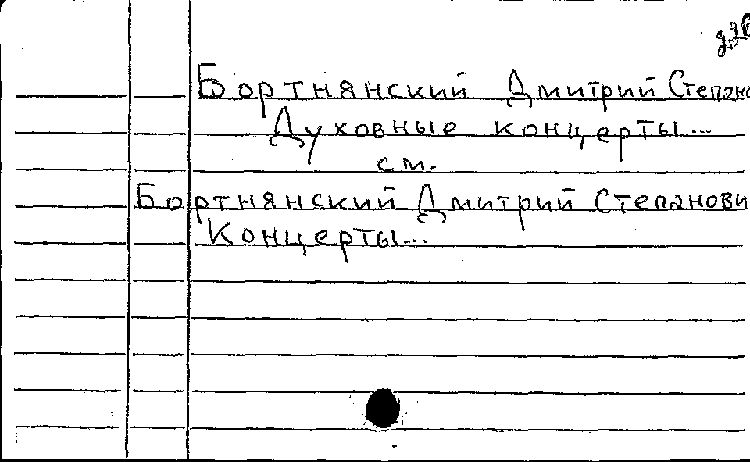 Бортнянский Дмитрий Степано
Духовные концерты...
см.
Бортнянский Дмитрий Степанови
Концерты...